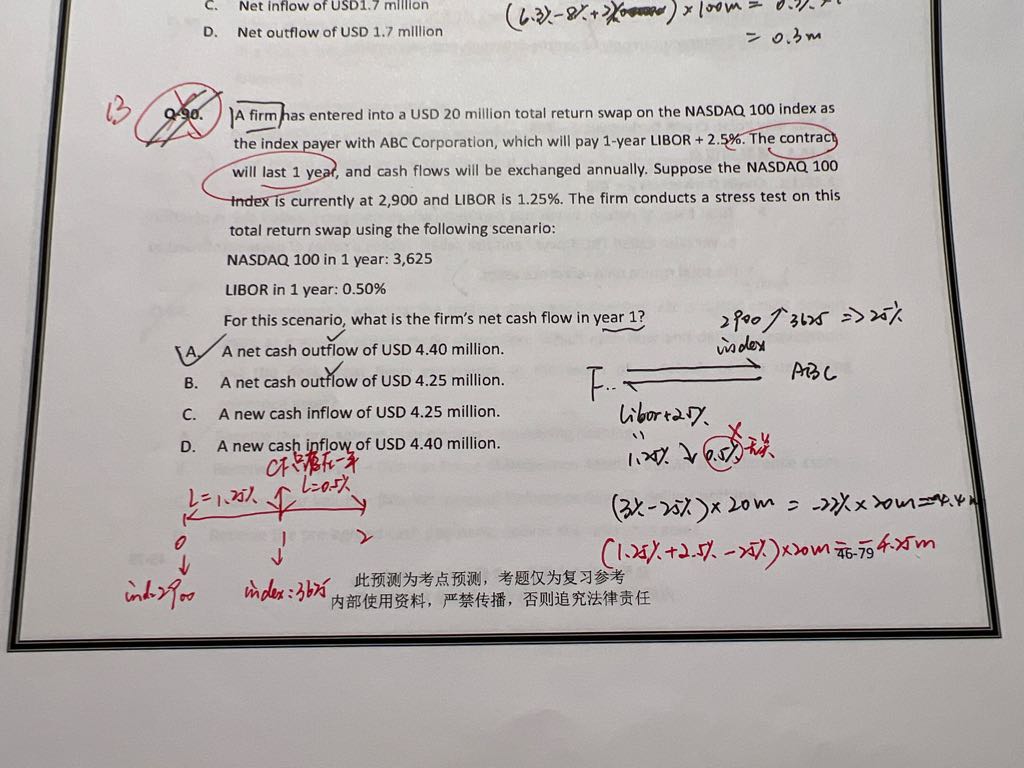 C. Net inflow of USD1.7 million
D. Net outflow of USD 1.7 million
= 0.3m
13
Q-90. A firm has entered into a USD 20 million total return swap on the NASDAQ 100 index as
the index payer with ABC Corporation, which will pay 1-year LIBOR + 2.5%. The contract
will last 1 year, and cash flows will be exchanged annually. Suppose the NASDAQ 100
Index is currently at 2,900 and LIBOR is 1.25%. The firm conducts a stress test on this
total return swap using the following scenario:
NASDAQ 100 in 1 year: 3,625
LIBOR in 1 year: 0.50%
For this scenario, what is the firm's net cash flow in year 1?
A. A net cash outflow of USD 4.40 million.
B. A net cash outflow of USD 4.25 million.
C. A new cash inflow of USD 4.25 million.
D. A new cash inflow of USD 4.40 million.
2900 ↗ 3625 => 25%
index
F.. ABC
Libor+2.5%
1.25% ↘ 0.5%
L=1.25% L=0.5%
0 1 2
index:3625
(3%-25%)×20m = -22%×20m=-4.4m
(1.25%+2.5%-25%)×20m=-4.25m
46-79
此预测为考点预测，考题仅为复习参考
内部使用资料，严禁传播，否则追究法律责任